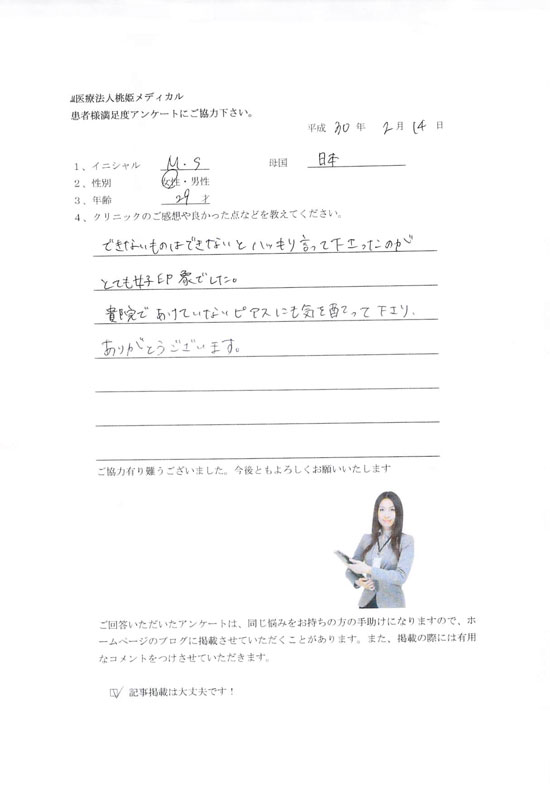 医療法人桃姫メディカル
患者様満足度アンケートにご協力下さい。
平成 30 年 2 月 14 日
1、イニシャル M・S 母国 日本
2、性別 女性・男性
3、年齢 29 才
4、クリニックのご感想や良かった点などを教えてください。
できないものはできないとハッキリ言って下さったのが
とても好印象でした。
貴院であけていないピアスにも気を配って下さり、
ありがとうございます。
ご協力有り難うございました。今後ともよろしくお願いいたします
ご回答いただいたアンケートは、同じ悩みをお持ちの方の手助けになりますので、ホ
ームページのブログに掲載させていただくことがあります。また、掲載の際には有用
なコメントをつけさせていただきます。
☑ 記事掲載は大丈夫です！